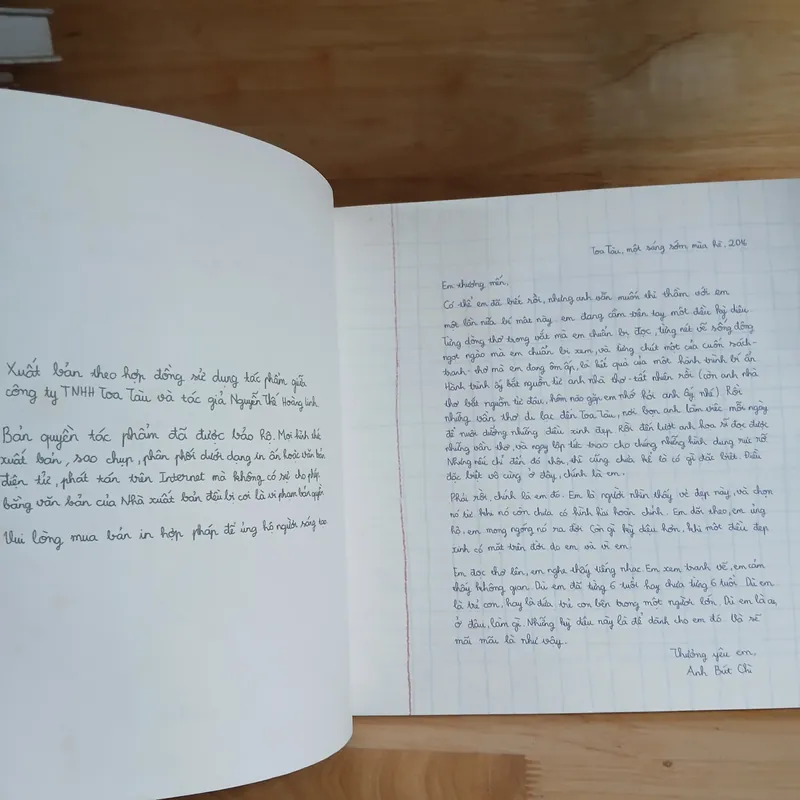 Xuất bản theo hợp đồng sử dụng tác phẩm giữa
công ty TNHH Toa Tàu và tác giả Nguyễn Thế Hoàng Linh.
Bản quyền tác phẩm đã được bảo hộ. Mọi hình thức
xuất bản, sao chụp, phân phối dưới dạng in ấn hoặc văn bản
điện tử, phát tán trên Internet mà không có sự cho phép
bằng văn bản của Nhà xuất bản đều bị coi là vi phạm bản quyền
Vui lòng mua bản in hợp pháp để ủng hộ người sáng tạo
Toa Tàu, một sáng sớm, mùa hè, 2016
Em thương mến,
Có thể em đã biết rồi, nhưng anh vẫn muốn thì thầm với em
một lần nữa bí mật này: em đang cầm trên tay một điều kỳ diệu.
Từng dòng thơ trong vắt mà em chuẩn bị đọc, từng nét vẽ sống động
ngọt ngào mà em chuẩn bị xem, và từng chút một của cuốn sách-
tranh-thơ mà em đang ôm ấp, là kết quả của một hành trình bí ẩn
Hành trình ấy bắt nguồn từ anh nhà thơ - tất nhiên rồi (còn anh nhà
thơ bắt nguồn từ đâu, hôm nào gặp em nhớ hỏi anh ấy nhé). Rồi
những vần thơ đi lạc đến Toa Tàu, nơi bọn anh làm việc mỗi ngày
để nuôi dưỡng những điều xinh đẹp. Rồi đến lượt anh họa sĩ đọc được
những vần thơ, và ngay lập tức trao cho chúng những hình dung rực rỡ.
Nhưng nếu chỉ đến đó thôi, thì cũng chưa hề là có gì đặc biệt. Điều
đặc biệt vô cùng ở đây, chính là em.
Phải rồi, chính là em đó. Em là người nhìn thấy vẻ đẹp này, và chọn
nó từ khi nó còn chưa có hình hài hoàn chỉnh. Em dõi theo, em ủng
hộ, em mong ngóng nó ra đời. Còn gì kỳ diệu hơn, khi một điều đẹp
xinh có mặt trên đời do em và vì em.
Em đọc thơ lên, em nghe thấy tiếng nhạc. Em xem tranh vẽ, em cảm
thấy không gian. Dù em đã từng 6 tuổi hay chưa từng 6 tuổi. Dù em
là trẻ con, hay là đứa trẻ con bên trong một người lớn. Dù em là ai,
ở đâu, làm gì. Những kỳ diệu này là để dành cho em đó. Và sẽ
mãi mãi là như vậy.
Thương yêu em,
Anh Bút Chì